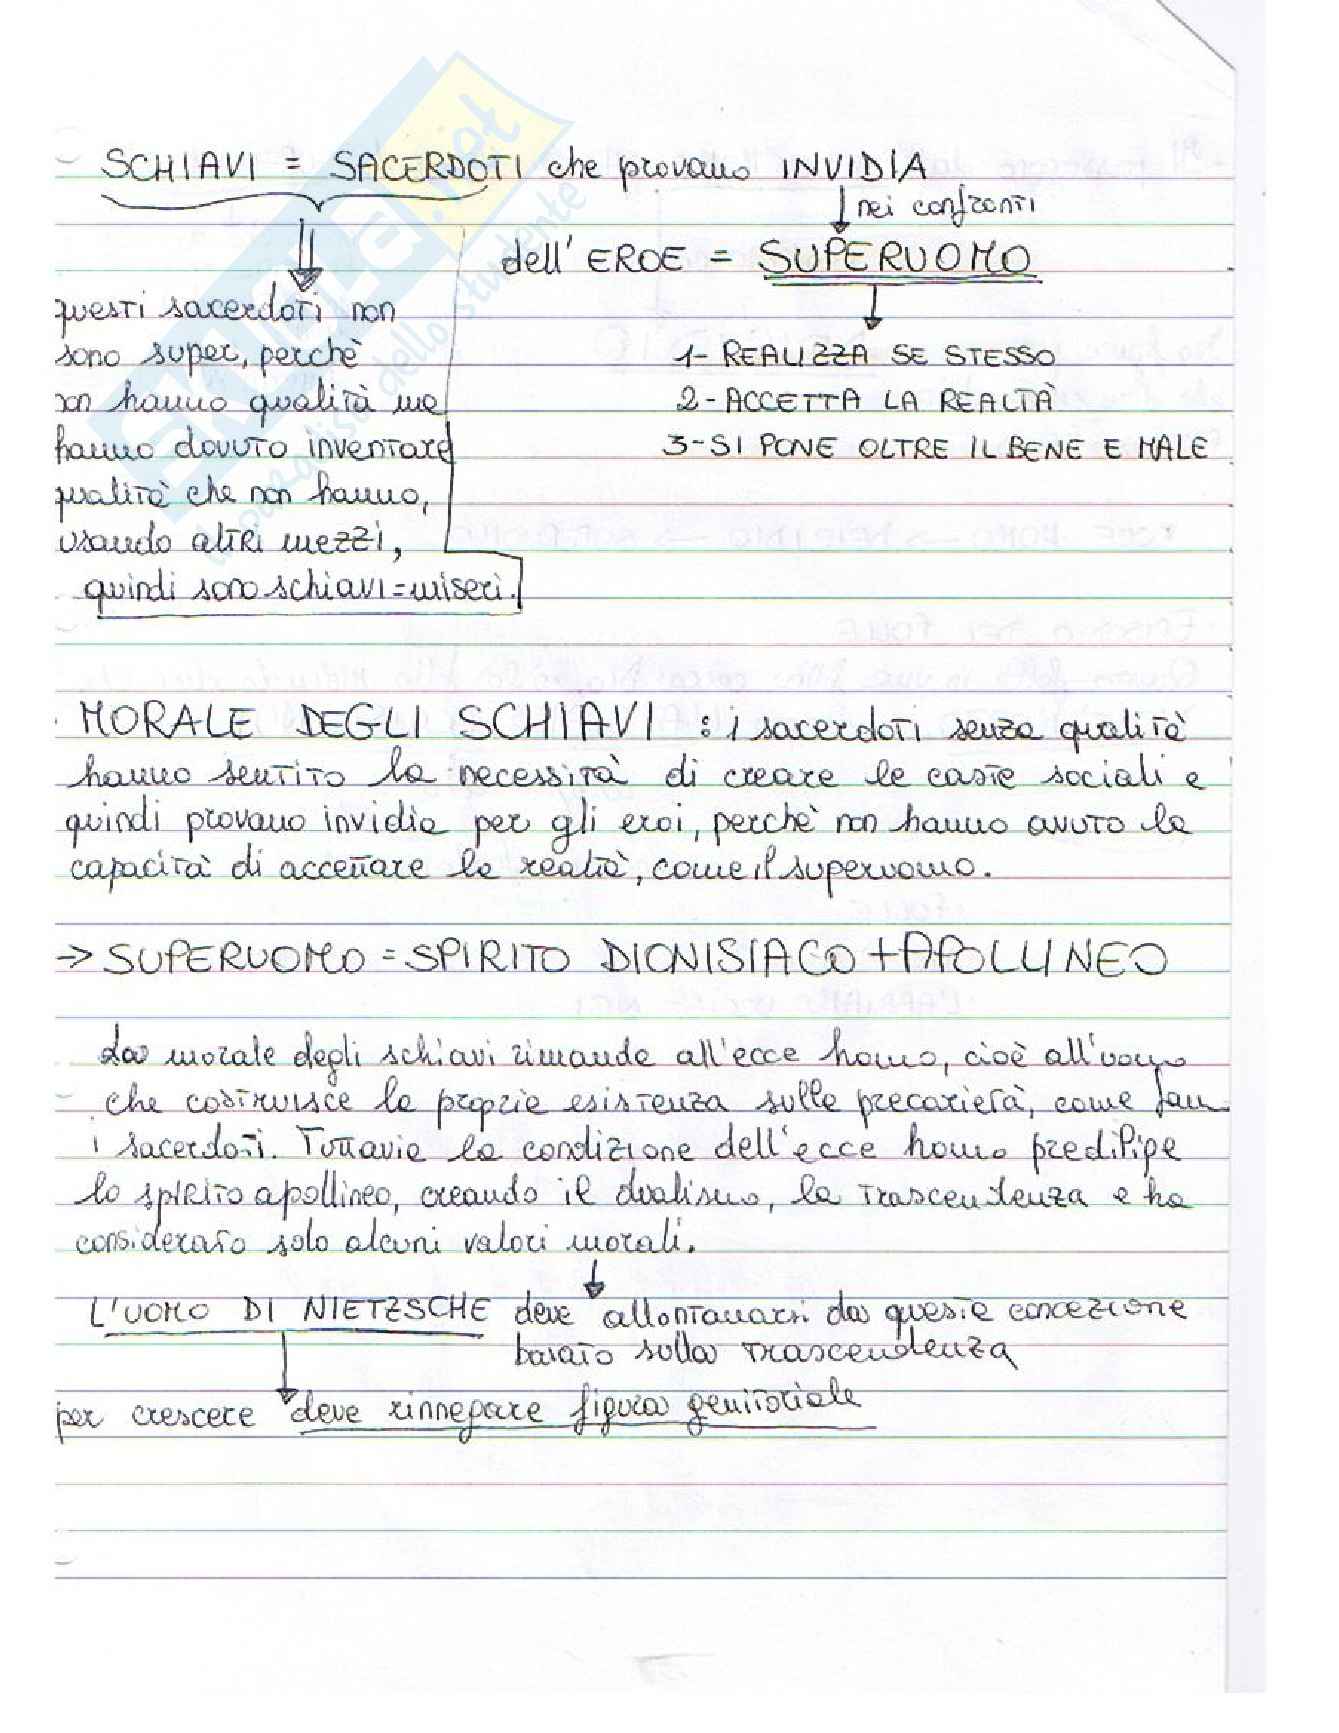 SCHIAVI = SACERDOTI che provano INVIDIA
nei confronti
dell'EROE = SUPERUOMO
questi sacerdoti non
sono super, perchè
non hanno qualità ma
hanno dovuto inventare
qualità che non hanno,
usando altri mezzi,
quindi sono schiavi = miseri.
1- REALIZZA SE STESSO
2- ACCETTA LA REALTÀ
3- SI PONE OLTRE IL BENE E MALE
MORALE DEGLI SCHIAVI : i sacerdoti senza qualità
hanno sentito la necessità di creare le caste sociali e
quindi provano invidia per gli eroi, perchè non hanno avuto la
capacità di accettare la realtà, come il superuomo.
→ SUPERUOMO = SPIRITO DIONISIACO + APOLLINEO
La morale degli schiavi rimanda all'ecce homo, cioè all'uomo
che costruisce la propria esistenza sulla precarietà, come fan
i sacerdoti. Tuttavia la condizione dell'ecce homo predilige
lo spirito apollineo, creando il dualismo, la trascendenza e ha
considerato solo alcuni valori morali.
L'UOMO DI NIETZSCHE deve allontanarsi da queste concezione
basato sulla trascendenza
per crescere deve rinnegare figura genitoriale
SKUOLA.net
il paradiso dello studente